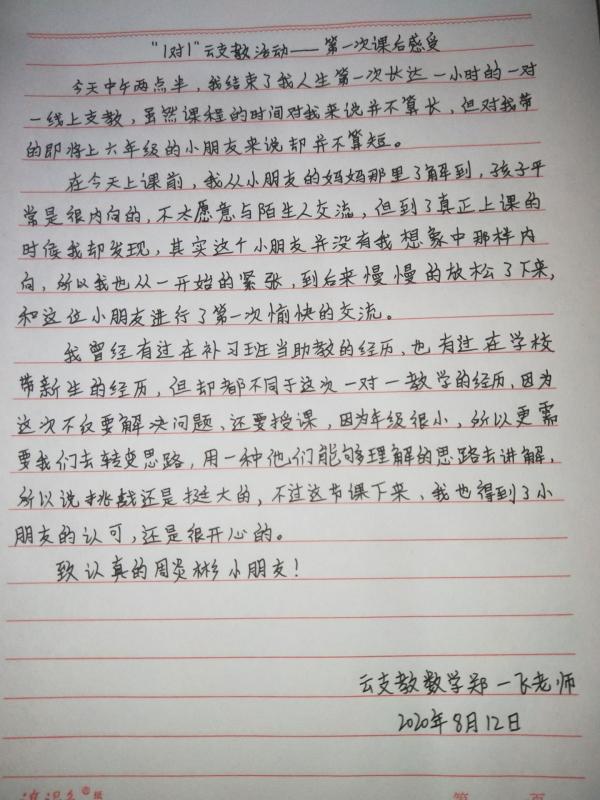 “1对1”云支教活动——第一次课后感受
今天中午两点半，我结束了我人生第一次长达一小时的一对
一线上支教，虽然课程的时间对我来说并不算长，但对我带
的即将上六年级的小朋友来说却并不算短。
在今天上课前，我从小朋友的妈妈那里了解到，孩子平
常是很内向的，不太愿意与陌生人交流，但到了真正上课的
时候我却发现，其实这个小朋友并没有我想象中那样内
向，所以我也从一开始的紧张，到后来慢慢的放松了下来，
和这位小朋友进行了第一次愉快的交流。
我曾经有过在补习班当助教的经历，也有过在学校
带新生的经历，但却都不同于这次一对一教学的经历，因为
这次不仅要解决问题、还要授课，因为年级很小，所以更需
要我们去转变思路，用一种他们能够理解的思路去讲解，
所以说挑战还是挺大的，不过这节课下来，我也得到了小
朋友的认可，还是很开心的。
致认真的周炎彬小朋友！
云支教数学郑一飞老师
2020年8月12日
第 页